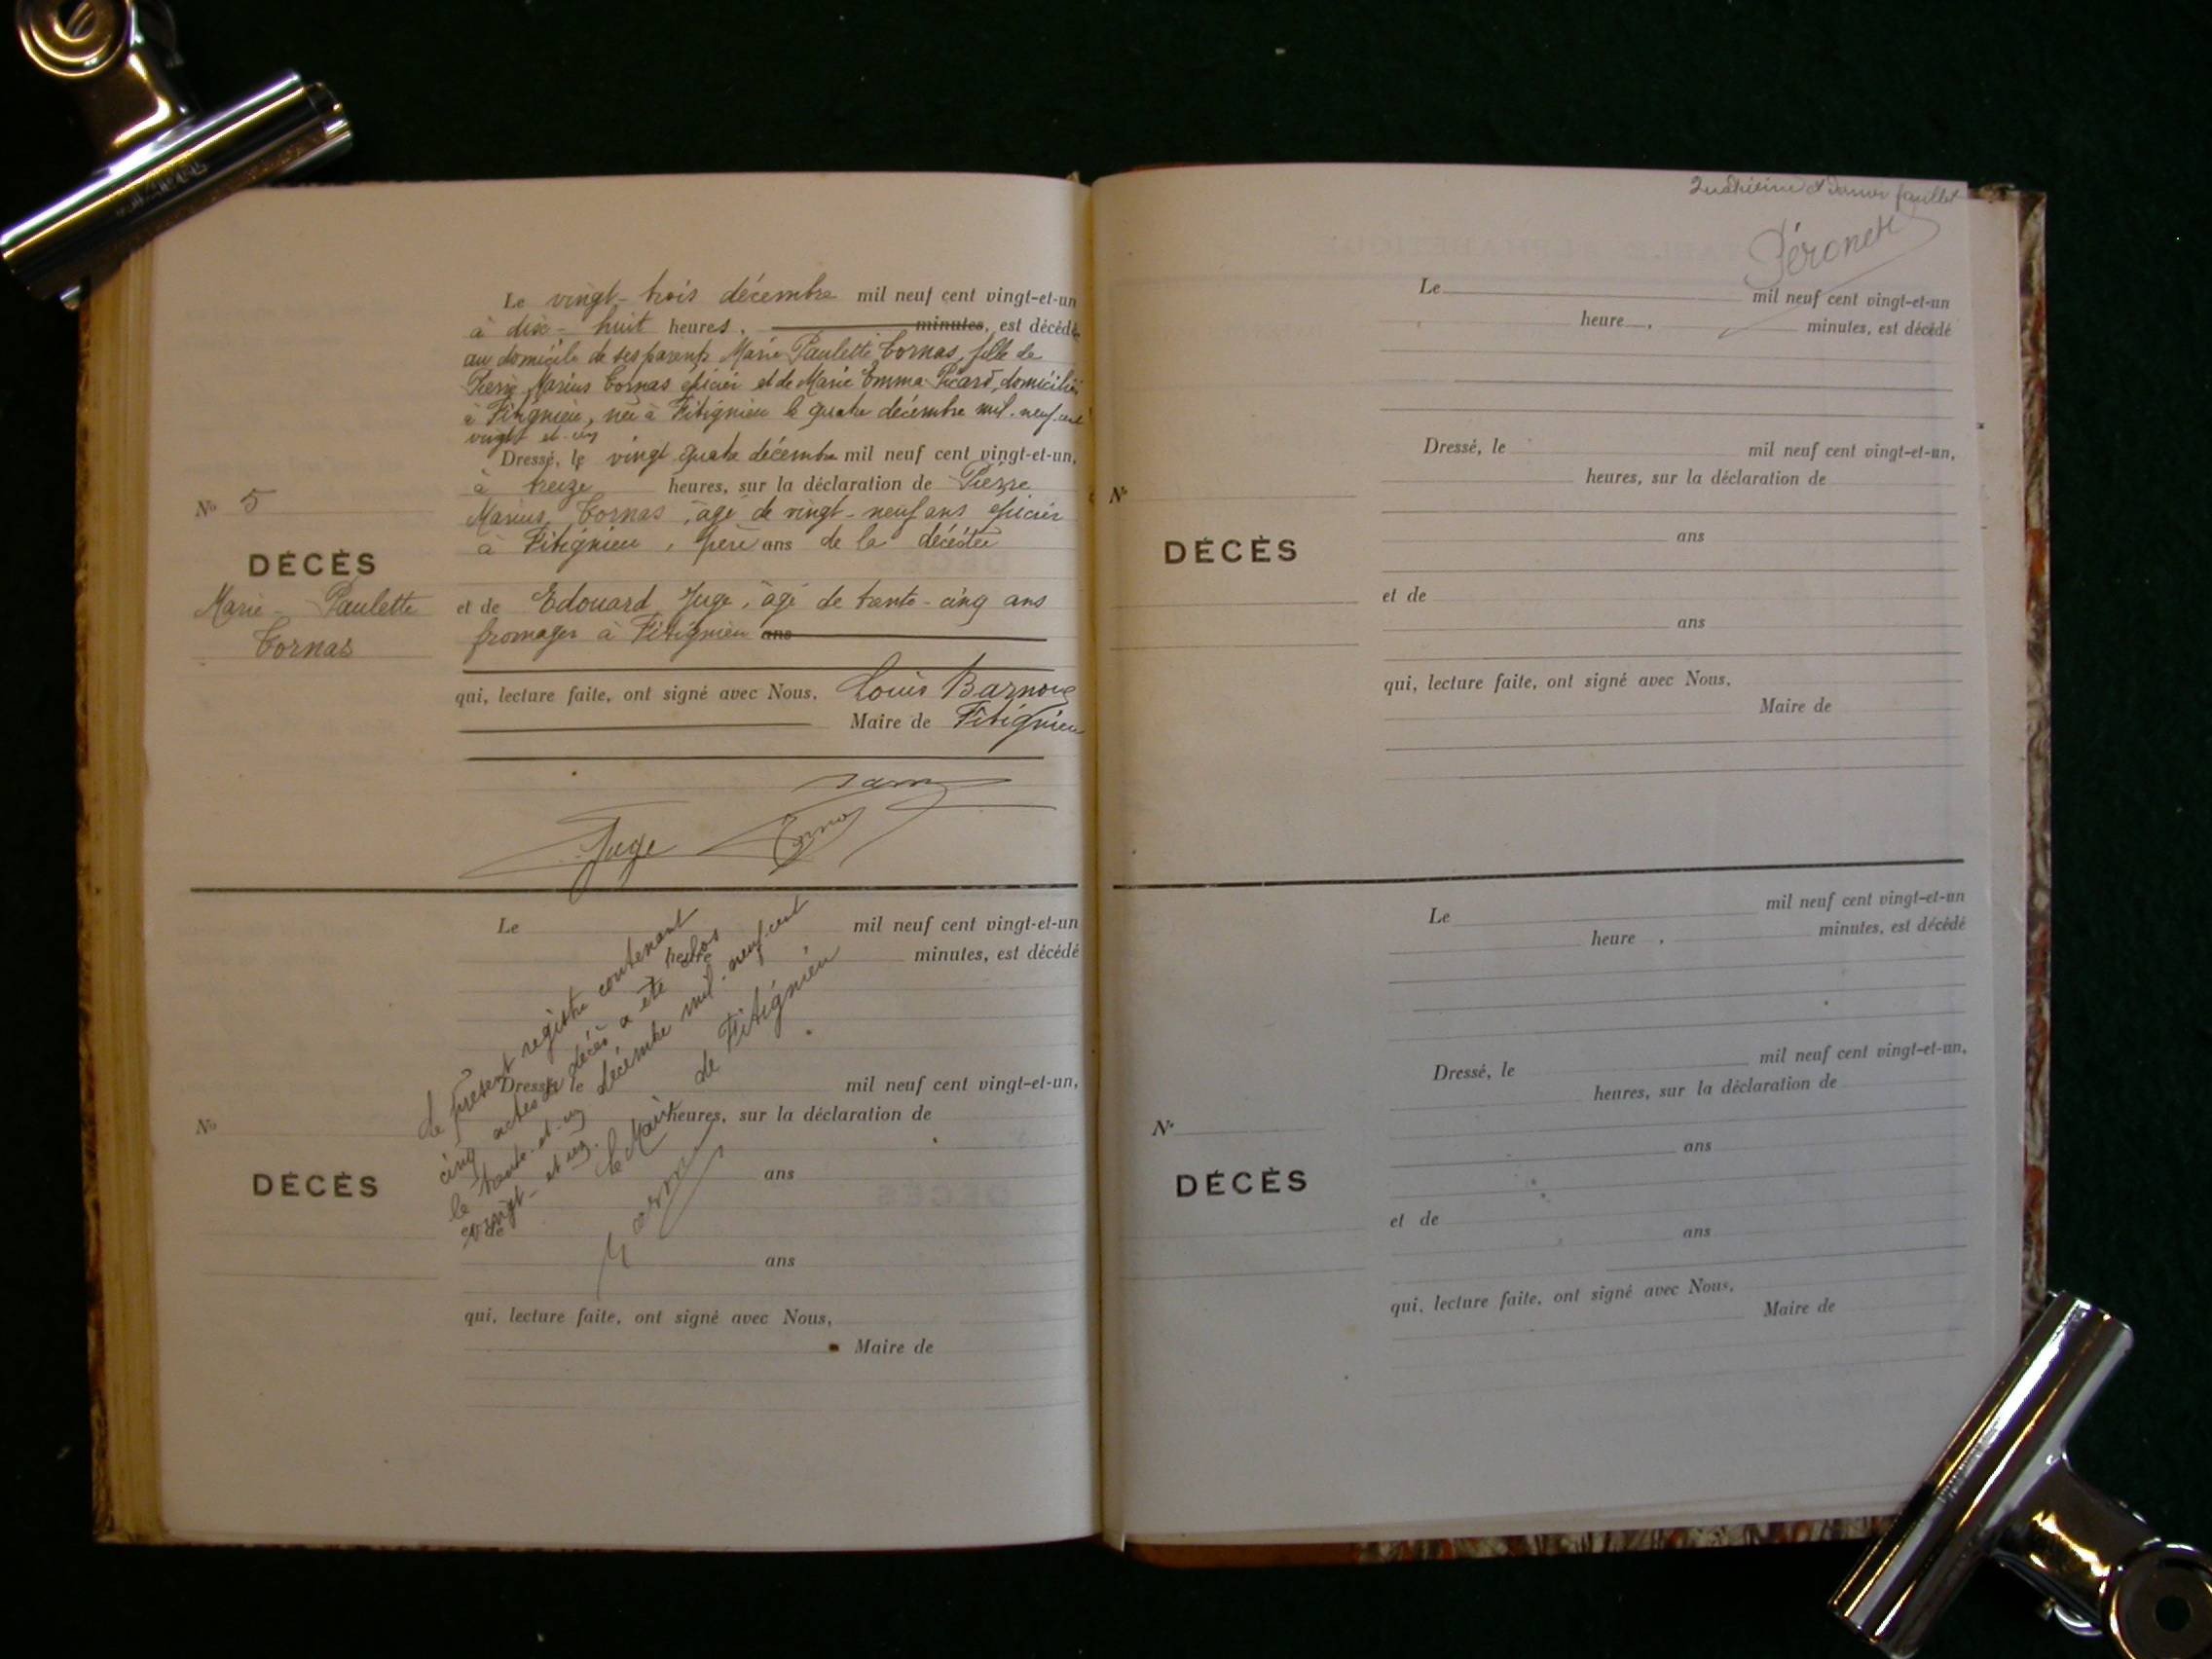 Le vingt-trois décembre mil neuf cent vingt-et-un
à dix-huit heures, minutes, est décédé
au domicile de ses parents Marie Paulette Tornas, fille de
Pierre Marius Tornas épicier et de Marie Emma Picard, domiciliés
à Fitignieu, née à Fitignieu le quatre décembre mil-neuf-cent
vingt et-un
Dressé, le vingt quatre décembre mil neuf cent vingt-et-un,
à treize heures, sur la déclaration de Pierre
No 5
Marius Tornas, âgé de vingt-neuf ans épicier
à Fitignieu, père ans de la décédée
DÉCÈS
Marie-Paulette
Tornas
et de Edouard Juge, âgé de trente-cinq ans
fromager à Fitignieu ans
qui, lecture faite, ont signé avec Nous, Louis
Maire de Fitignieu
Juge Tornas
Le mil neuf cent vingt-et-un
heure minutes, est décédé
Dressé, le mil neuf cent vingt-et-un,
heures, sur la déclaration de
No
DÉCÈS
ans
et de
ans
qui, lecture faite, ont signé avec Nous,
Maire de
Le présent registre contenant
cinq actes de décès a été clos
le trente-et-un décembre mil-neuf-cent
vingt-et un.
Le Maire de Fitignieu
et dernier feuillet
Péronet
Le mil neuf cent vingt-et-un
heure , minutes, est décédé
Dressé, le mil neuf cent vingt-et-un,
heures, sur la déclaration de
No
DÉCÈS
ans
et de
ans
qui, lecture faite, ont signé avec Nous,
Maire de
Le mil neuf cent vingt-et-un
heure , minutes, est décédé
Dressé, le mil neuf cent vingt-et-un,
heures, sur la déclaration de
No
DÉCÈS
ans
et de
ans
qui, lecture faite, ont signé avec Nous,
Maire de